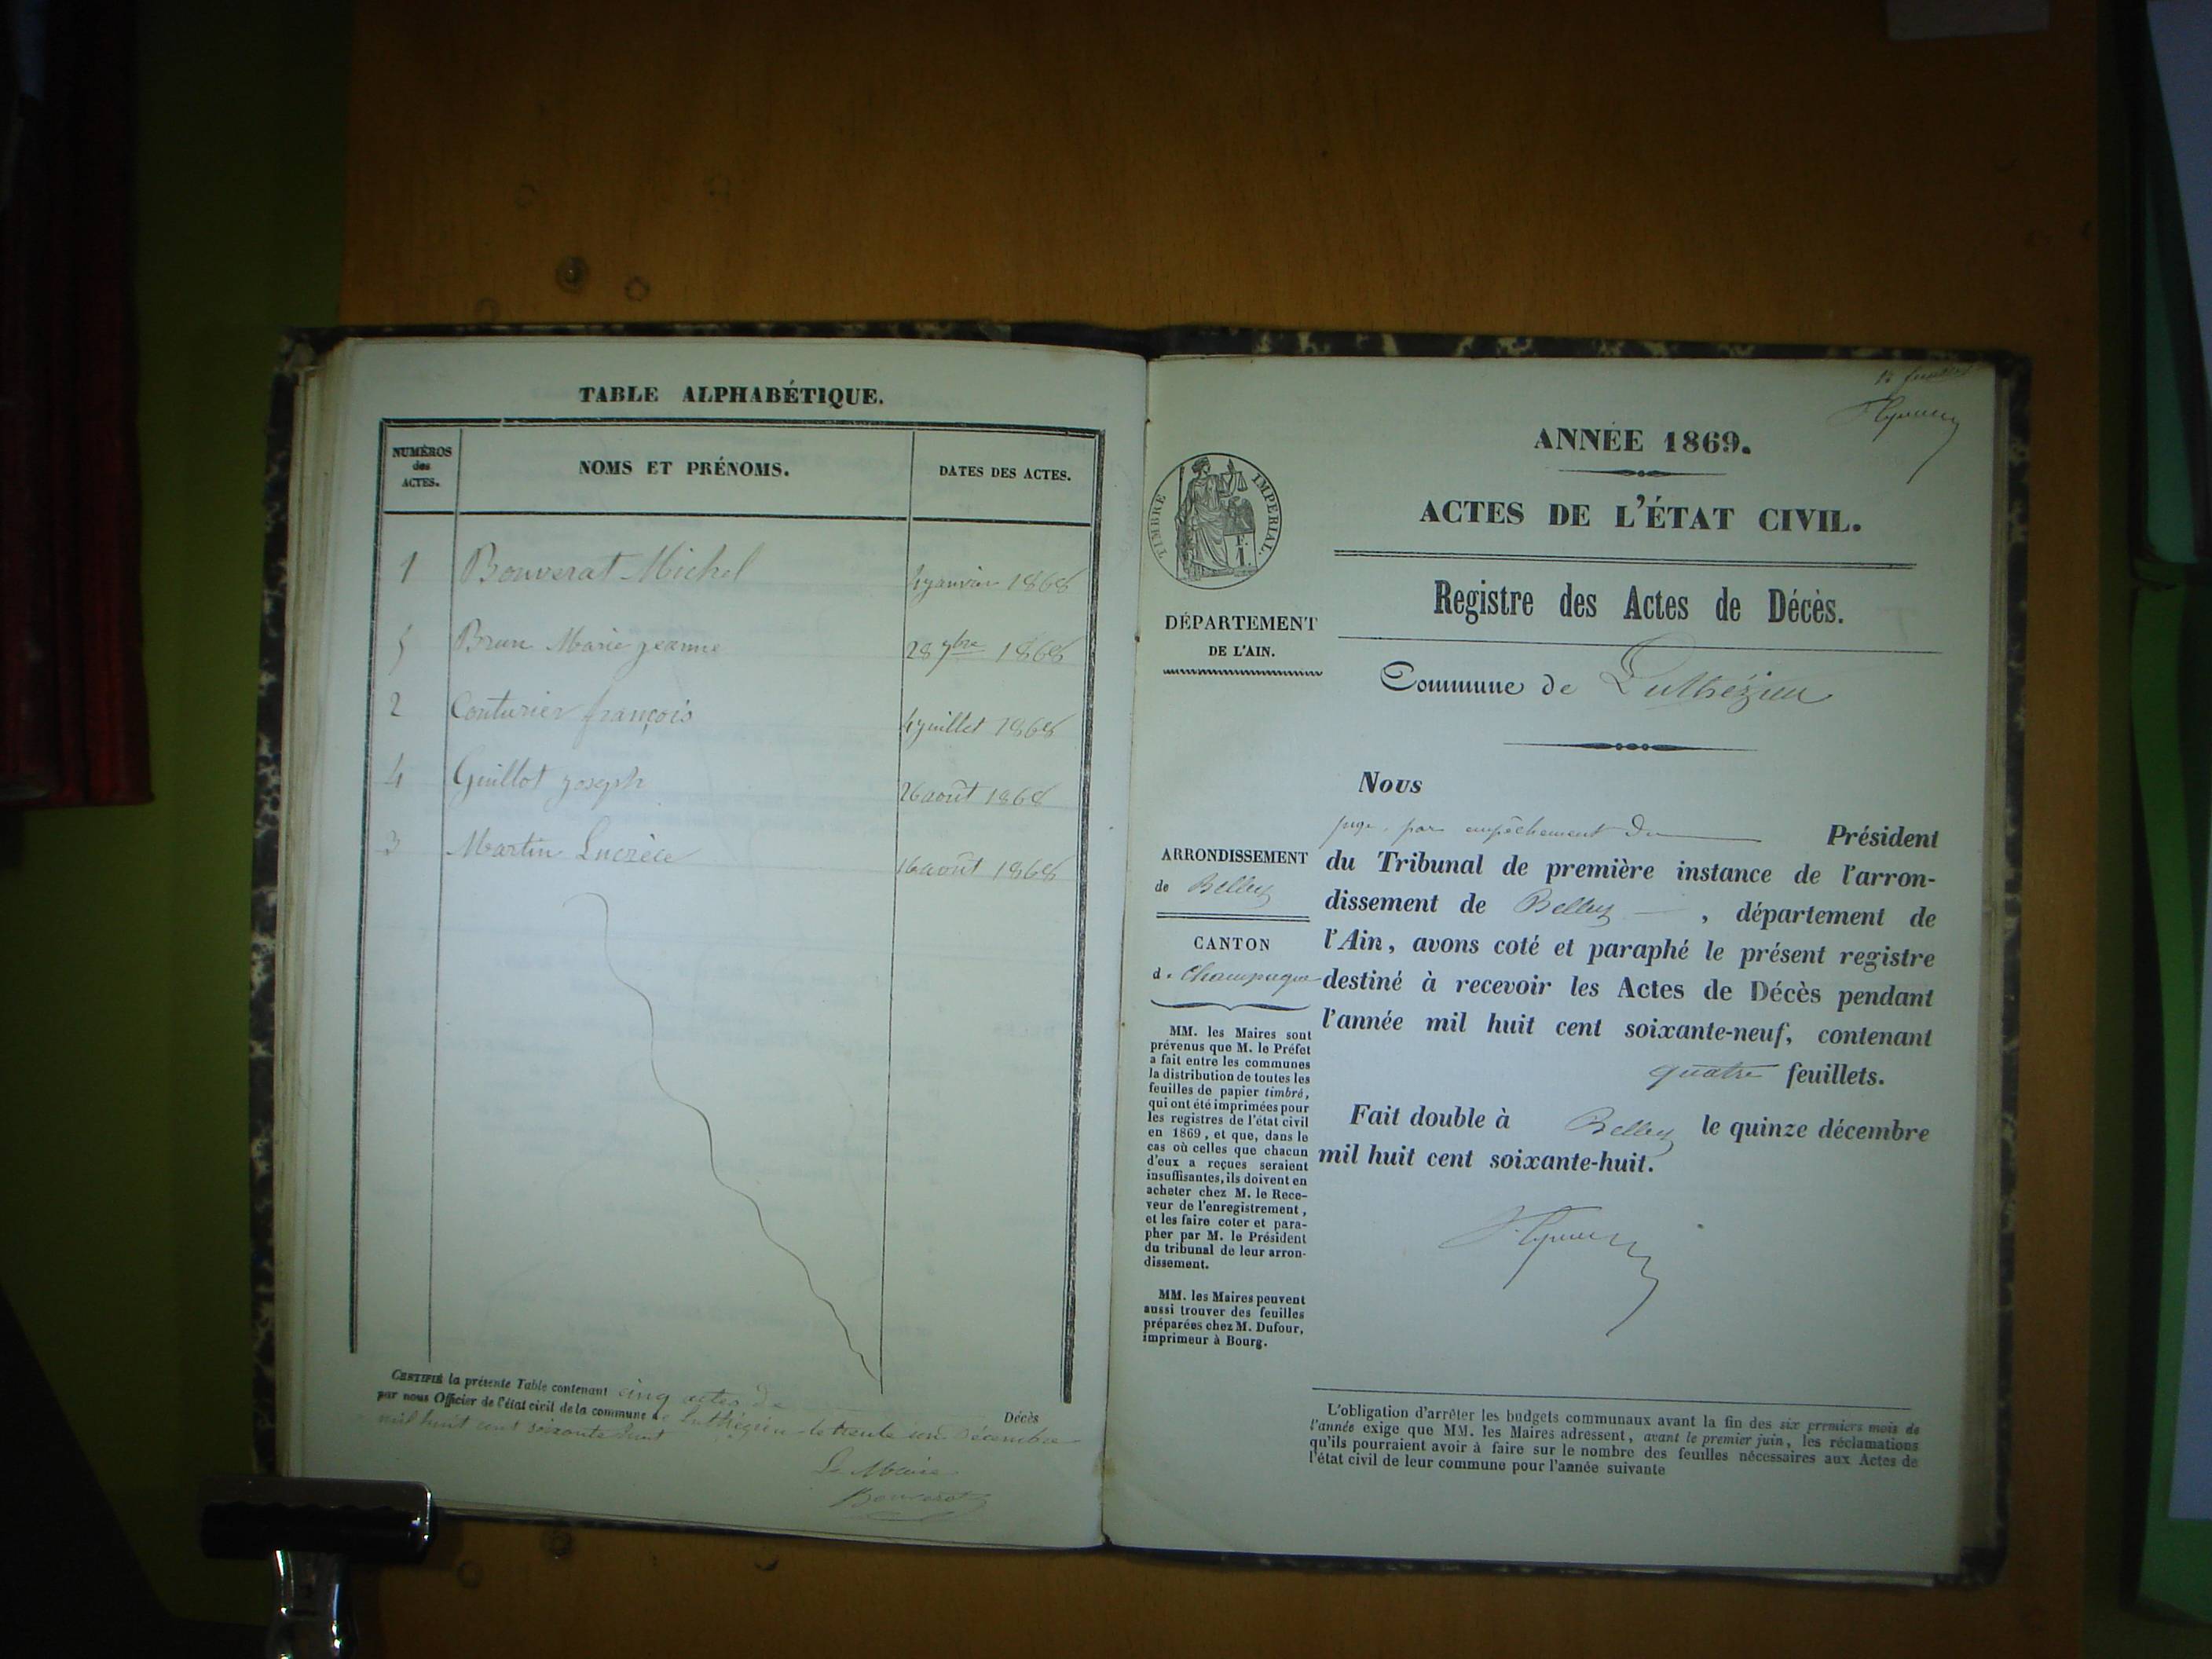 TABLE ALPHABÉTIQUE.
NUMÉROS
des
ACTES.
NOMS ET PRÉNOMS.
DATES DES ACTES.
1 Bouverat Michel 4 janvier 1868
5 Brun Marie jeanne 28 7bre 1868
2 Couturier françois 4 juillet 1868
4 Guillot joseph 26 août 1868
3 Martin Lucrèce 16 août 1868
CERTIFIÉ la présente Table contenant cinq actes de Décès
par nous Officier de l'état civil de la commune de Luthézieu le trente un Décembre
mil huit cent soixante huit
Le Maire
Bouverat
ANNÉE 1869.
ACTES DE L'ÉTAT CIVIL.
TIMBRE IMPÉRIAL.
Registre des Actes de Décès.
DÉPARTEMENT
DE L'AIN.
Commune de Luthézieu
Nous
juge, par empêchement du Président
du Tribunal de première instance de l'arron-
dissement de Belley, département de
l'Ain, avons coté et paraphé le présent registre
destiné à recevoir les Actes de Décès pendant
l'année mil huit cent soixante-neuf, contenant
quatre feuillets.
Fait double à Belley le quinze décembre
mil huit cent soixante-huit.
ARRONDISSEMENT
de Belley
CANTON
de Champagne
MM. les Maires sont
prévenus que M. le Préfet
a fait entre les communes
la distribution de toutes les
feuilles de papier timbré,
qui ont été imprimées pour
les registres de l'état civil
en 1869, et que, dans le
cas où celles que chacun
d'eux a reçues seraient
insuffisantes, ils doivent en
acheter chez M. le Rece-
veur de l'enregistrement,
et les faire coter et para-
pher par M. le Président
du tribunal de leur arron-
dissement.
MM. les Maires peuvent
aussi trouver des feuilles
préparées chez M. Dufour,
imprimeur à Bourg.
L'obligation d'arrêter les budgets communaux avant la fin des six premiers mois de
l'année exige que MM. les Maires adressent, avant le premier juin, les réclamations
qu'ils pourraient avoir à faire sur le nombre des feuilles nécessaires aux Actes de
l'état civil de leur commune pour l'année suivante